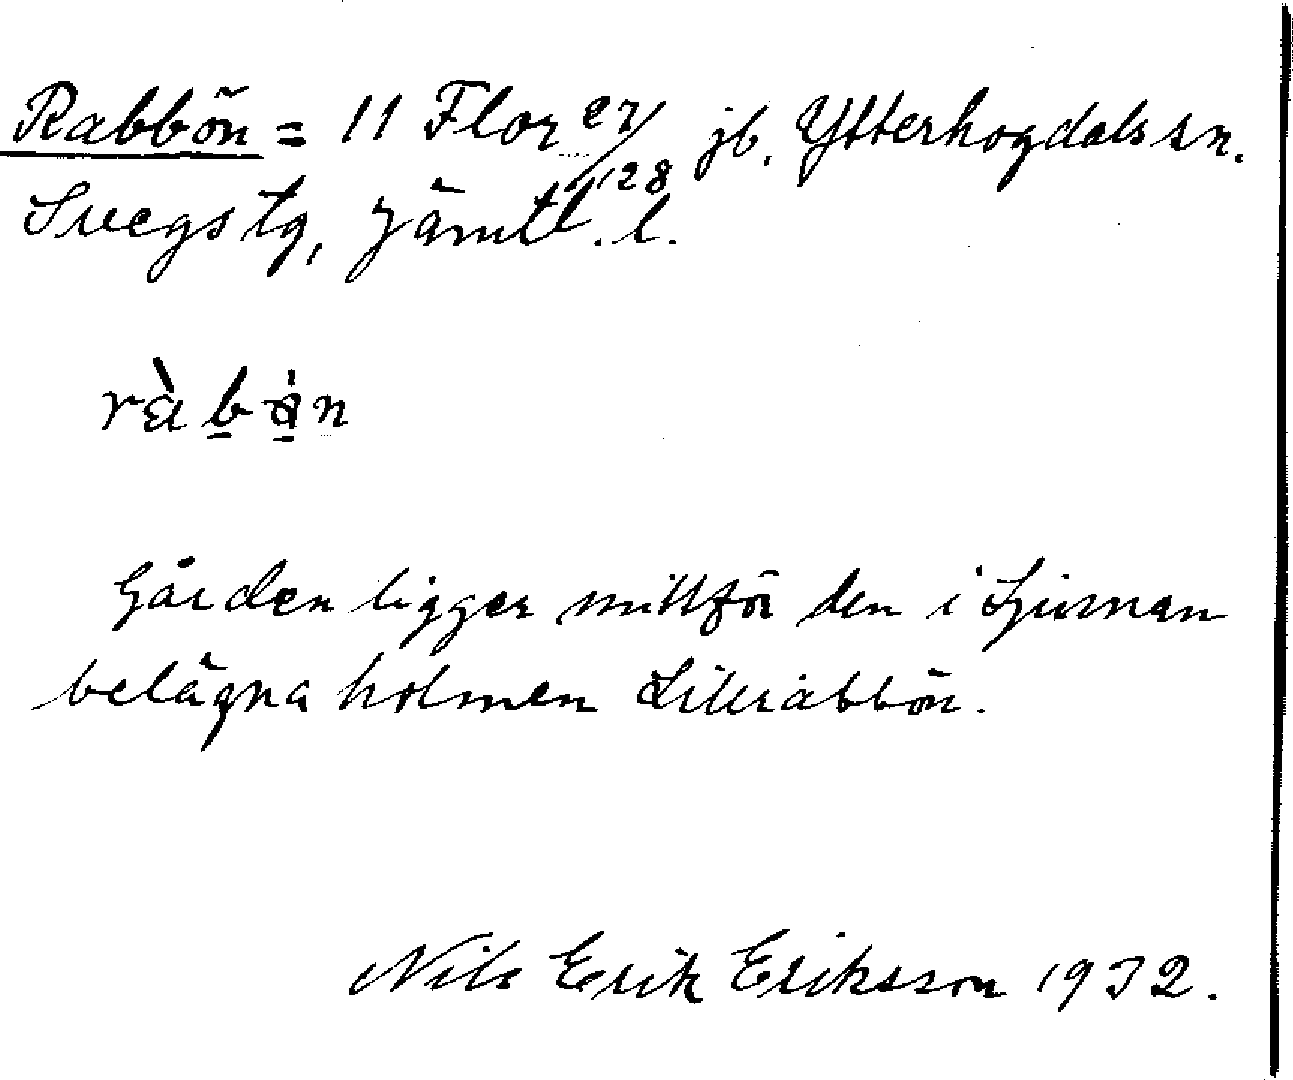 Rabbön = 11 Flor 27/128 jb. Ytterhogdals sn.
Svegs tg, Jämtl. l.
Gården ligger mittför den i Ljusnan
belägna holmen Lillrabbön.
Nils Erik Eriksson 1932.